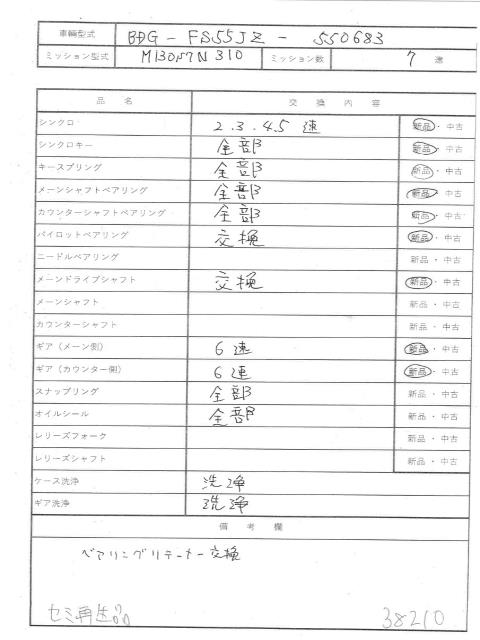 車輛型式 BDG - FS55JZ - 550683
ミッション型式 M130N7N 310 ミッション数 7 速
品名 交換内容
シンクロ 2.3.4.5 速 新品・中古
シンクロキー 全部 新品・中古
キースプリング 全部 新品・中古
メーンシャフトベアリング 全部 新品・中古
カウンターシャフトベアリング 全部 新品・中古
パイロットベアリング 交換 新品・中古
ニードルベアリング 新品・中古
メーンドライブシャフト 交換 新品・中古
メーンシャフト 新品・中古
カウンターシャフト 新品・中古
ギア(メーン側) 6 速 新品・中古
ギア(カウンター側) 6 速 新品・中古
スナップリング 全部 新品・中古
オイルシール 全部 新品・中古
レリーズフォーク 新品・中古
レリーズシャフト 新品・中古
ケース洗浄 洗浄
ギア洗浄 洗浄
備考欄
ベアリングリテーナー交換
セミ再生品 38210